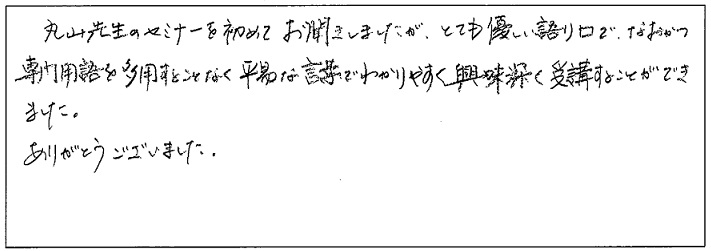 丸山先生のセミナーを初めてお聞きしましたが、とても優しい語り口で、なおかつ
専門用語を多用することなく平易な言葉でわかりやすく興味深く受講することができ
ました。
ありがとうございました。